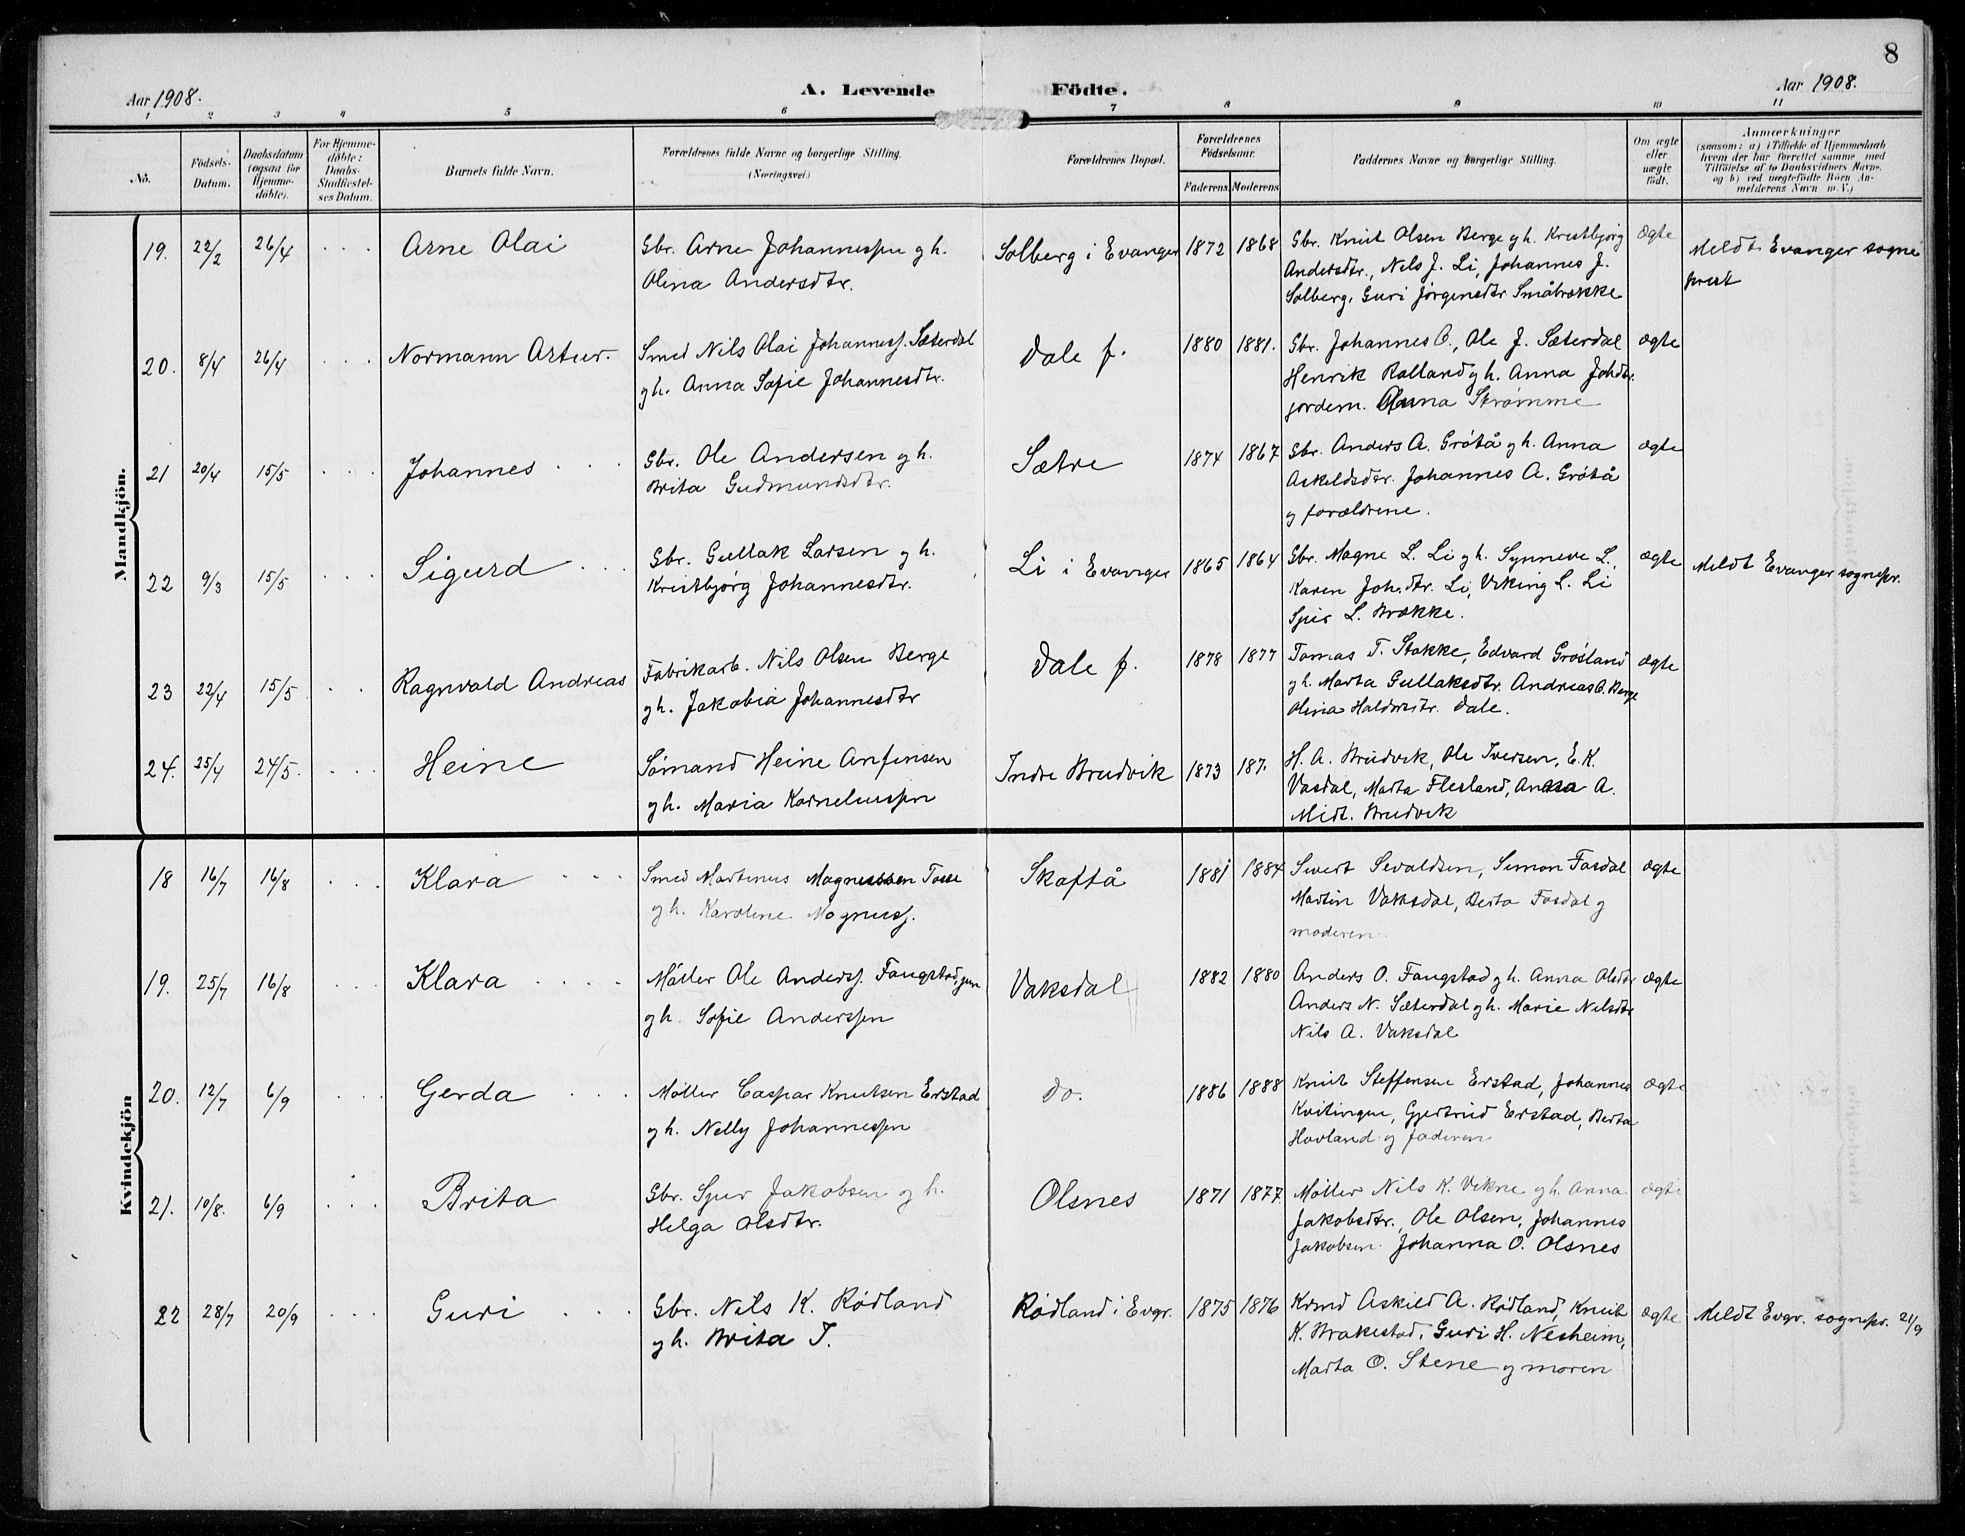 8
Aar 1908.
A. Levende
Födte.
Aar 1908.
1 2 3 4 5 6 7 8 9 10 11
No.
Födsels-Datum.
Daabsdatum (ogsaa for Hjemme-döbte).
For Hjemme-döbte: Daabs-Stadfæstel-ses Datum.
Barnets fulde Navn.
Forældrenes fulde Navne og borgerlige Stilling. (Næringsvei.)
Forældrenes Bopæl.
Forældrenes Födselsaar.
Faderens. Moderens.
Faddernes Navne og borgerlige Stilling.
Om ægte eller uægte födt.
Anmærkninger
(saasom: a) i Tilfælde af Hjemmedaab
hvem der har forrettet samme med
Tilföielse af to Daabsvidners Navne.
og b) ved uægtefödte Börn An-
melderens Navn m. V.)
Mandkjön.
19. 22/2 26/4 . . . Arne Olai Gbr. Arne Johannessen gh. Solberg i Evanger 1872 1868 Gbr. Knut Olsen Berge gh. Kristbjørg ægte Meldt Evanger sogne
Olina Andersdtr. Andersdtr., Nils J. Li, Johannes J. prest
Solberg, Guri Jørgensdtr Småbrække
20. 8/4 26/4 . . . Normann Artur. Smed Nils Olai Johanness. Sæterdal Dale f. 1880 1881. Gbr. Johannes O., Ole J. Sæterdal ægte
gh. Anna Sofie Johannesdtr. Henrik Rolland gh. Anna Johdtr.
jordem. Anna Strømme
21 20/4 15/5 . . . Johannes . . . Gbr. Ole Andersen gh. Sætre 1874 1867 Gbr. Anders A. Grøtå gh. Anna ægte
Brita Gudmundsdtr. Askildsdtr. Johannes A. Grøtå
og forældrene.
22 9/3 15/5 . . . Sigurd . . . Gbr. Gullak Larsen gh. Li i Evanger 1865 1864 Gbr. Magne L. Li gh. Synneve L., ægte Meldt Evanger sognepr.
Kristbjørg Johannesdtr. Karen Joh.dtr. Li, Viking L. Li
Sjur L. Brække.
23 22/4 15/5 . . Ragnvald Andreas Fabrikarb. Nils Olsen Berge Dale f. 1878 1877 Tomas T. Stokke, Edvard Grøsland ægte
gh. Jakobia Johannesdtr gh. Marta Gullaksdtr. Andreas O. Berge
Olina Haldorsdtr. Dale.
24. 25/4 24/5. . . . Heine Sømand Heine Anfinsen Indre Bruvik 1873 187. H. A. Brudvik, Ole Iversen, E. K.
gh. Maria Korneliussen Vasdal, Marta Flesland, Anna A.
Midt. Brudvik
Kvindekjön
18 16/7 16/8 . . . Klara . . . Smed Martinus Magnussen Tosse Skaftå 1881 1884 Sivert Sevaldsen, Simon Fosdal ægte
gh. Karoline Magnuss. Martin Vaksdal, Berta Fosdal og
moderen.
19. 25/7 16/8 . . . Klara . . . . Møller Ole Anderss. Fangstad, jun Vaksdal 1882 1880 Anders O. Fangstad gh. Anna Olsdtr ægte
gh. Sofie Anderssen Anders N. Sæterdal gh. Marie Nilsdtr
Nils A. Vaksdal
20. 12/7 6/9 . . . Gerda . . . Møller Caspar Knutsen Erstad do. 1886 1888 Knut Steffensen Erstad, Johannes ægte
gh. Nelly Johannessen Kvitingen, Gjertrud Erstad, Berta
Hovland og faderen
21. 10/8. 6/9 . . . Brita Gbr. Sjur Jakobsen gh. Olsnes 1871 1877 Møller Nils K. Vikne gh. Anna ægte
Helga Olsdtr. Jakobsdtr., Ole Olsen, Johannes
Jakobsen Johanna O. Olsnes
22 28/7 20/9 . . . Guri . . . Gbr. Nils K. Rødland Rødland i Evgr. 1875 1876 Krmd Askild A. Rødland, Knut ægte Meldt Evgr. sognepr. 21/9
gh. Brita T. K. Brakestad, Guri H. Nesheim,
Marta O. Stene og moren